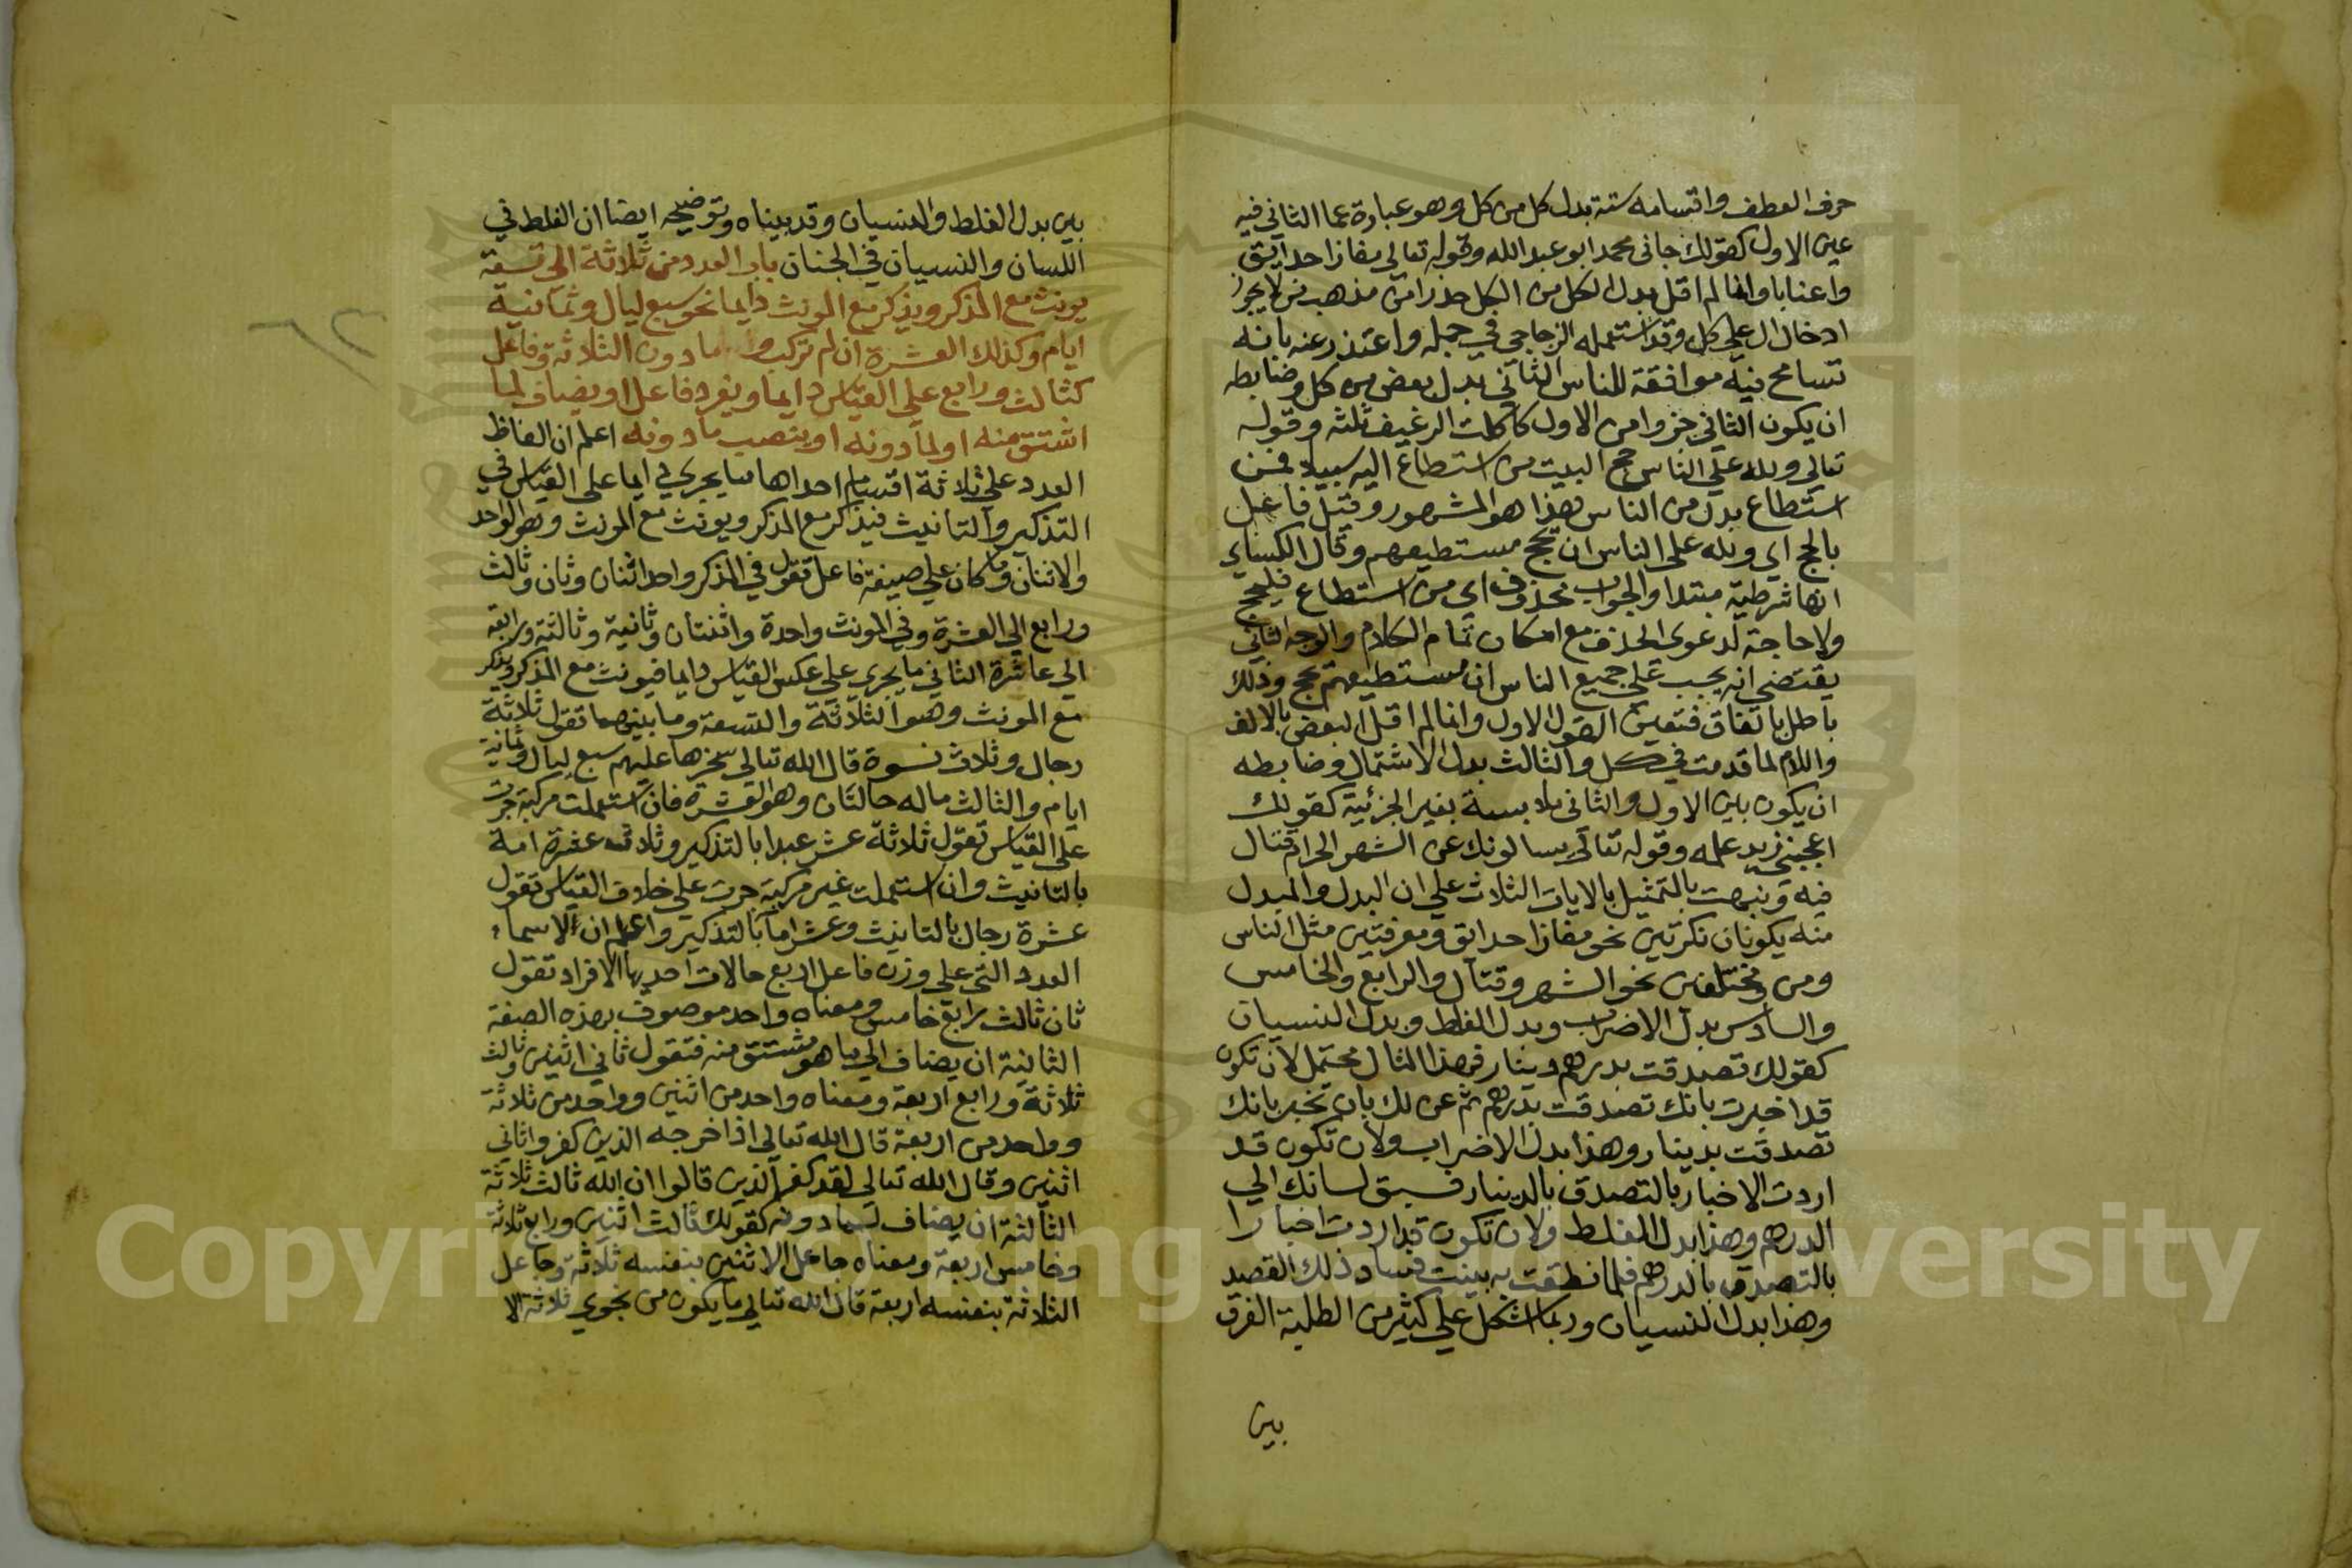 حرف العطف واقسامه ستة بدل كل من كل وهو عبارة عما الثاني فيه
عين الاول كقولك جاني محمد ابو عبد الله وقوله تعالي مفازا حدايق
واعنابا وانما لم اقل بدل الكل من الكل حذرا من مذهب من لا يجوز
ادخال ال علي كل وقد استعمله الزجاجي في جمله واعتذر عنه بانه
تسامح فيه موافقة للناس الثاني بدل بعض من كل وضابطه
ان يكون الثاني جزوا من الاول كاكلت الرغيف ثلثه وقوله
تعالي ولله علي الناس حج البيت من استطاع اليه سبيلا فمن
استطاع بدل من الناس هذا هو المشهور وقيل فاعل
بالحج اي ولله علي الناس ان يحج مستطيعهم وقال الكساي
انها شرطية مبتدا والجواب محذوف اي من استطاع فليحج
ولا حاجة لدعوي الحذف مع امكان تمام الكلام والوجه الثاني
يقتضي انه يجب علي جميع الناس ان مستطيعهم يحج وذلك
باطل باتفاق فتعين القول الاول وانما لم اقل البعض بالالف
واللام لما قدمت في كل والثالث بدل الاشتمال وضابطه
ان يكون بين الاول والثاني ملابسة بغير الجزئية كقولك
اعجبني زيد علمه وقوله تعالي يسالونك عن الشهر الحرام قتال
فيه ونبهت بالتمثيل بالايات الثلاث علي ان البدل والمبدل
منه يكونان نكرتين نحو مفازا حدائق ومعرفتين مثل الناس
ومن ومختلفين نحو الشهر وقتال والرابع والخامس
والسادس بدل الاضراب وبدل الغلط وبدل النسيان
كقولك تصدقت بدرهم دينار فهذا المثال محتمل لان تكون
قد اخبرت بانك تصدقت بدرهم ثم عن لك بان تخبر بانك
تصدقت بدينار وهذا بدل الاضراب ولان تكون قد
اردت الاخبار بالتصدق بالدينار فسبق لسانك الي
الدرهم وهذا بدل الغلط ولان تكون قد اردت اخبارا
بالتصدق بالدرهم فلما نطقت به بينت فساد ذلك القصد
وهذا بدل النسيان وربما اشكل علي كثير من الطلبة الفرق
بين
بين بدل الغلط والنسيان وقد بيناه وتوضيحه ايضا ان الغلط في
اللسان والنسيان في الجنان باب العدد من ثلاثة الي تسعة
يونث مع المذكر ويذكر مع المونث دايما نحو سبع ليال وثمانية
ايام وكذلك العشرة ان لم تركب وما دون الثلاثة وفاعل
كثالث ورابع علي القياس دايما ويفرد فاعل او يضاف لما
اشتق منه او لما دونه او ينصب ما دونه اعلم ان الفاظ
العدد علي ثلاثة اقسام احداها ما يجري دايما علي القياس في
التذكير والتانيث فيذكر مع المذكر ويونث مع المونث وهو الواحد
والاثنان وما كان علي صيغة فاعل تقول في المذكر واحد اثنان وثان وثالث
ورابع الي العشرة وفي المونث واحدة واثنتان وثانية وثالثة ورابعة
الي عاشرة الثاني ما يجري علي عكس القياس دايما فيونث مع المذكر ويذكر
مع المونث وهو الثلاثة والتسعة وما بينهما تقول ثلاثة
رجال وثلاث نسوة قال الله تعالي سخرها عليهم سبع ليال وثمانية
ايام والثالث ماله حالتان وهو العشرة فان استعملت مركبة جرت
علي القياس تقول ثلاثة عشر عبدا بالتذكير وثلاث عشرة امة
بالتانيث وان استعملت غير مركبة جرت علي خلاف القياس تقول
عشرة رجال بالتانيث وعشر اما بالتذكير واعلم ان لاسماء
العدد التي علي وزن فاعل اربع حالات احديها الافراد تقول
ثان ثالث رابع خامس ومعناه واحد موصوف بهذه الصفة
الثانية ان يضاف الي ما هو مشتق منه فتقول ثاني اثنين وثالث
ثلاثة ورابع اربعة ومعناه واحد من اثنين وواحد من ثلاثة
وواحد من اربعة قال الله تعالي اذ اخرجه الذين كفروا ثاني
اثنين وقال الله تعالي لقد كفر الذين قالوا ان الله ثالث ثلاثة
الثالثة ان يضاف لما دونه كقولك ثالث اثنين ورابع ثلاثة
وخامس اربعة ومعناه جاعل الاثنين بنفسه ثلاثة وجاعل
الثلاثة بنفسه اربعة قال الله تعالي ما يكون من نجوي ثلاثة الا